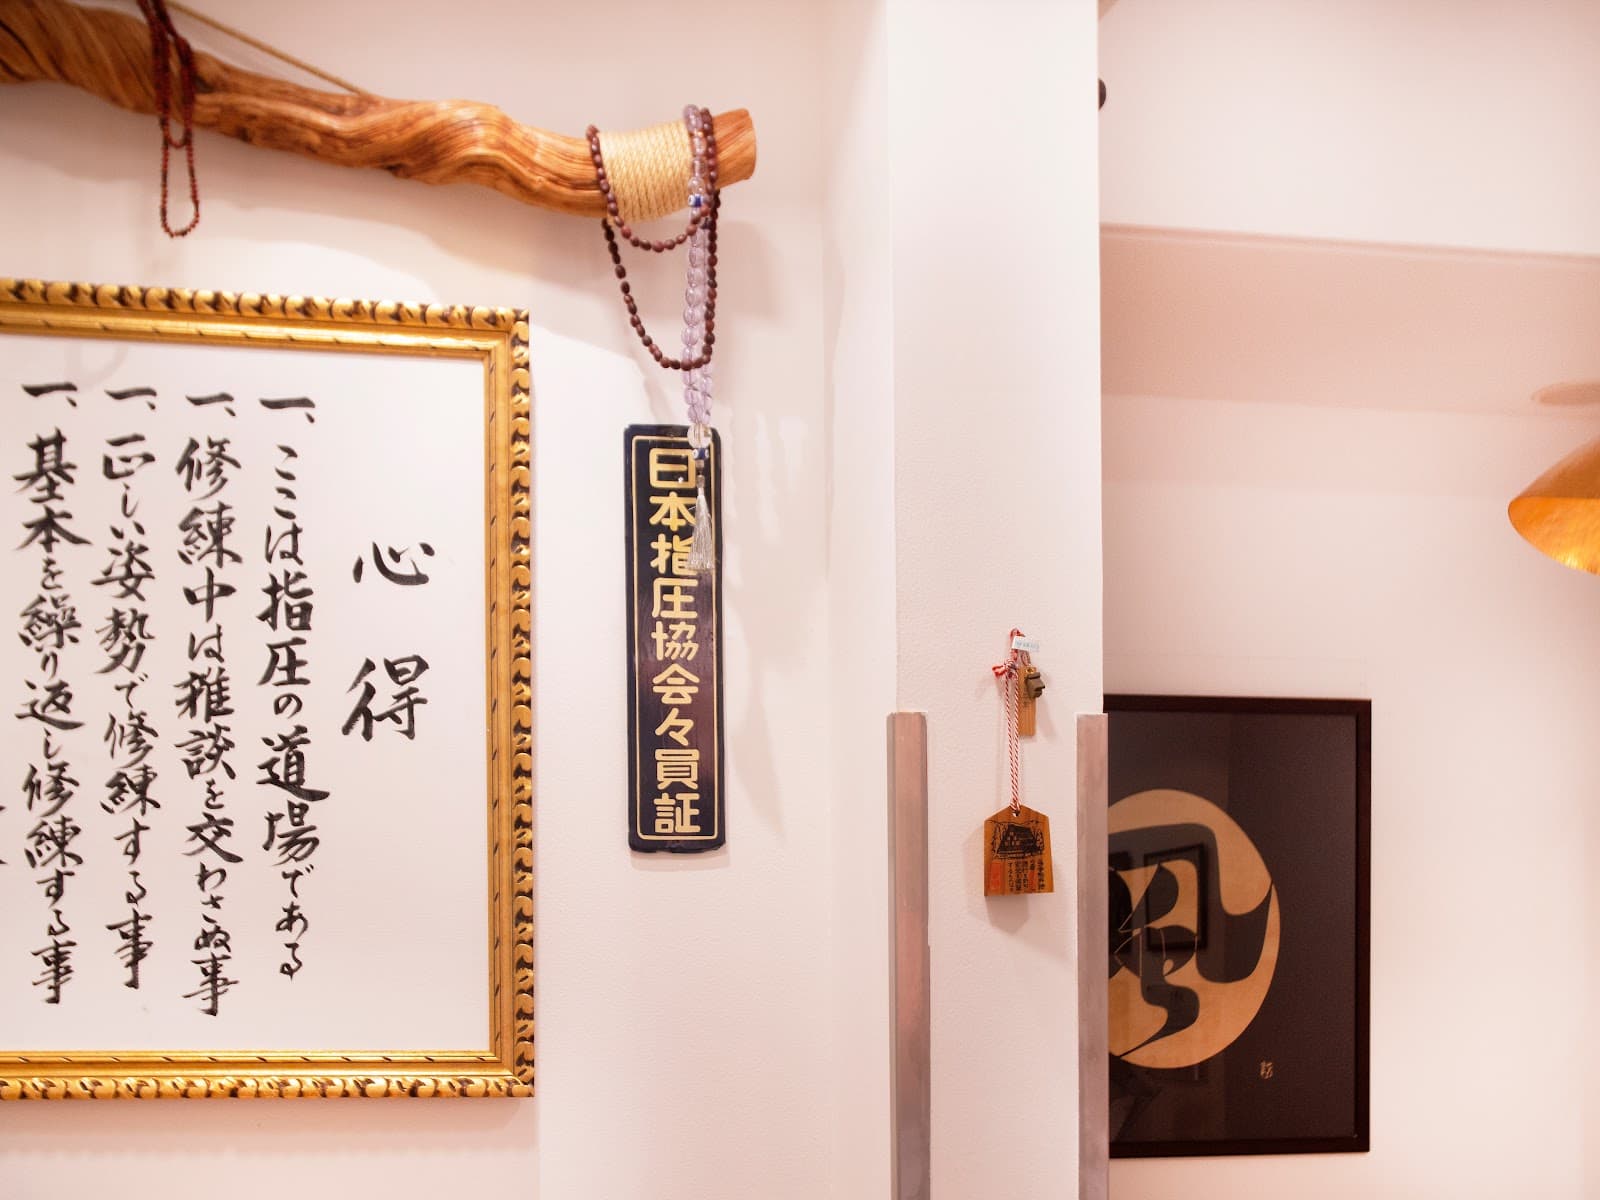 心得
一、ここは指圧の道場である
一、修練中は雑談を交わさぬ事
一、正しい姿勢で修練する事
一、基本を繰り返し修練する事
日本指圧協会々員証